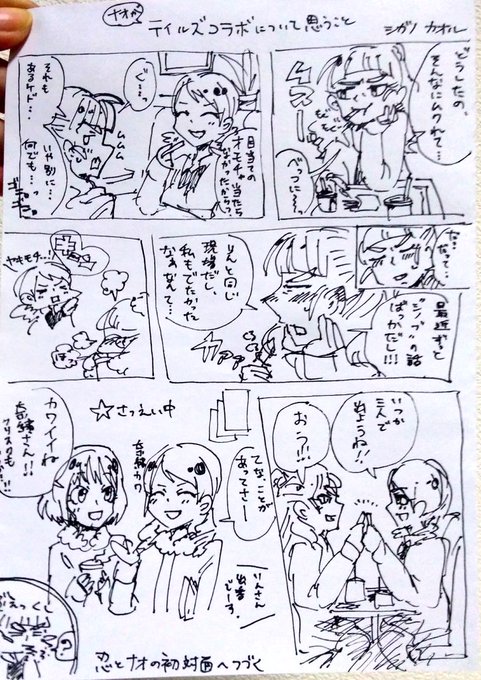 ナオが
テイルズコラボについて思うこと
シガノ カオル
どうしたの、
そんなにムクれて…
べっつに〜っ
目当ての
オモチャ当たら
なかったからっ
ぐ…っ
ムムム
それも
あるケド…
いや別に…
何でも…っ
だ…
だって…
最近ずっと
ばっかだし!!!
りんと同じ
現場だし、
私もでたかった
なぁなんて…
ヤキモチ…!
いつか
三人で
出ようね!!
おう!!!
てな、ことが
あってさー
☆さつえい中
奈緒カワ
カワイイね
奈緒さん!!
りんさん
でーす。
?
忍とナオの初対面へつづく